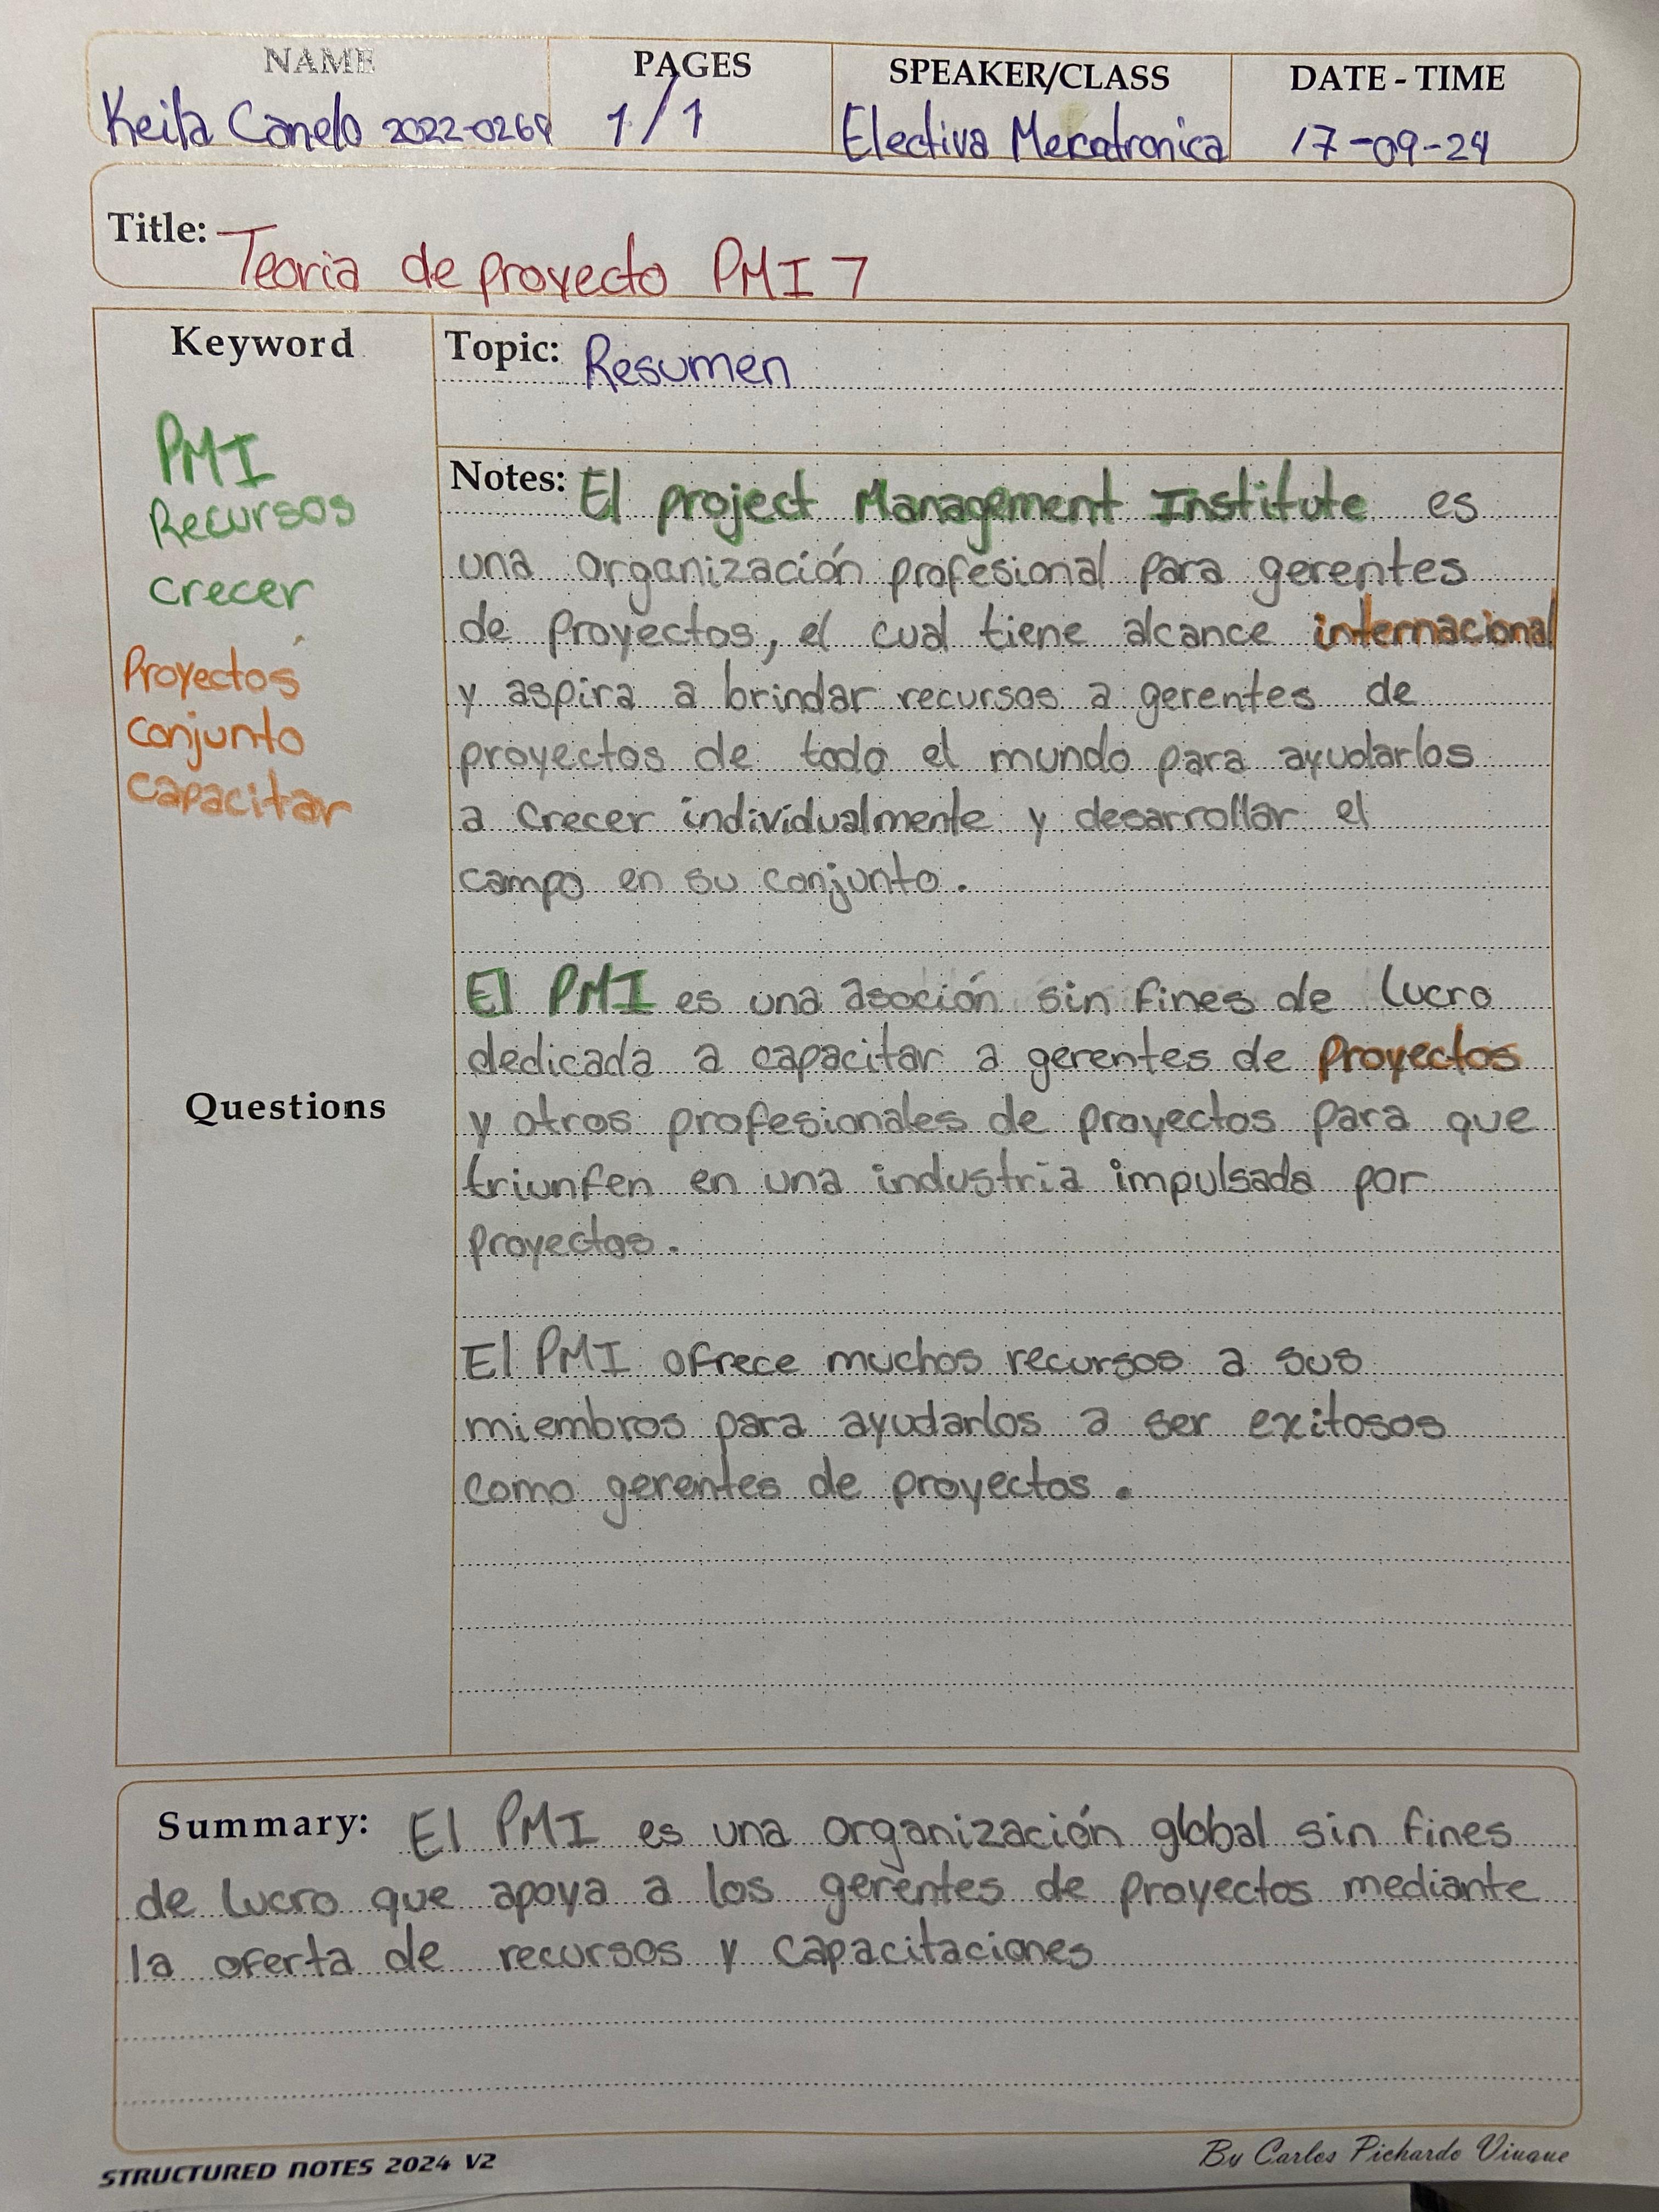 NAME PAGES SPEAKER/CLASS DATE - TIME
Keila Canelo 2022-0269 1/1 Electiva Mecatronica 17-09-24
Title: Teoria de proyecto PMI 7
Keyword
PMI
Recursos
crecer
Proyectos
conjunto
capacitar
Questions
Topic: Resumen
Notes: El project Management Institute es
una organización profesional para gerentes
de proyectos, el cual tiene alcance internacional
y aspira a brindar recursos a gerentes de
proyectos de todo el mundo para ayudarlos
a crecer individualmente y desarrollar el
campo en su conjunto.
El PMI es una asoción sin fines de lucro
dedicada a capacitar a gerentes de proyectos
y otros profesionales de proyectos para que
triunfen en una industria impulsada por
proyectos.
El PMI ofrece muchos recursos a sus
miembros para ayudarlos a ser exitosos
como gerentes de proyectos.
Summary: El PMI es una organización global sin fines
de lucro que apoya a los gerentes de proyectos mediante
la oferta de recursos y capacitaciones
STRUCTURED NOTES 2024 V2
By Carlos Pichardo Viuque